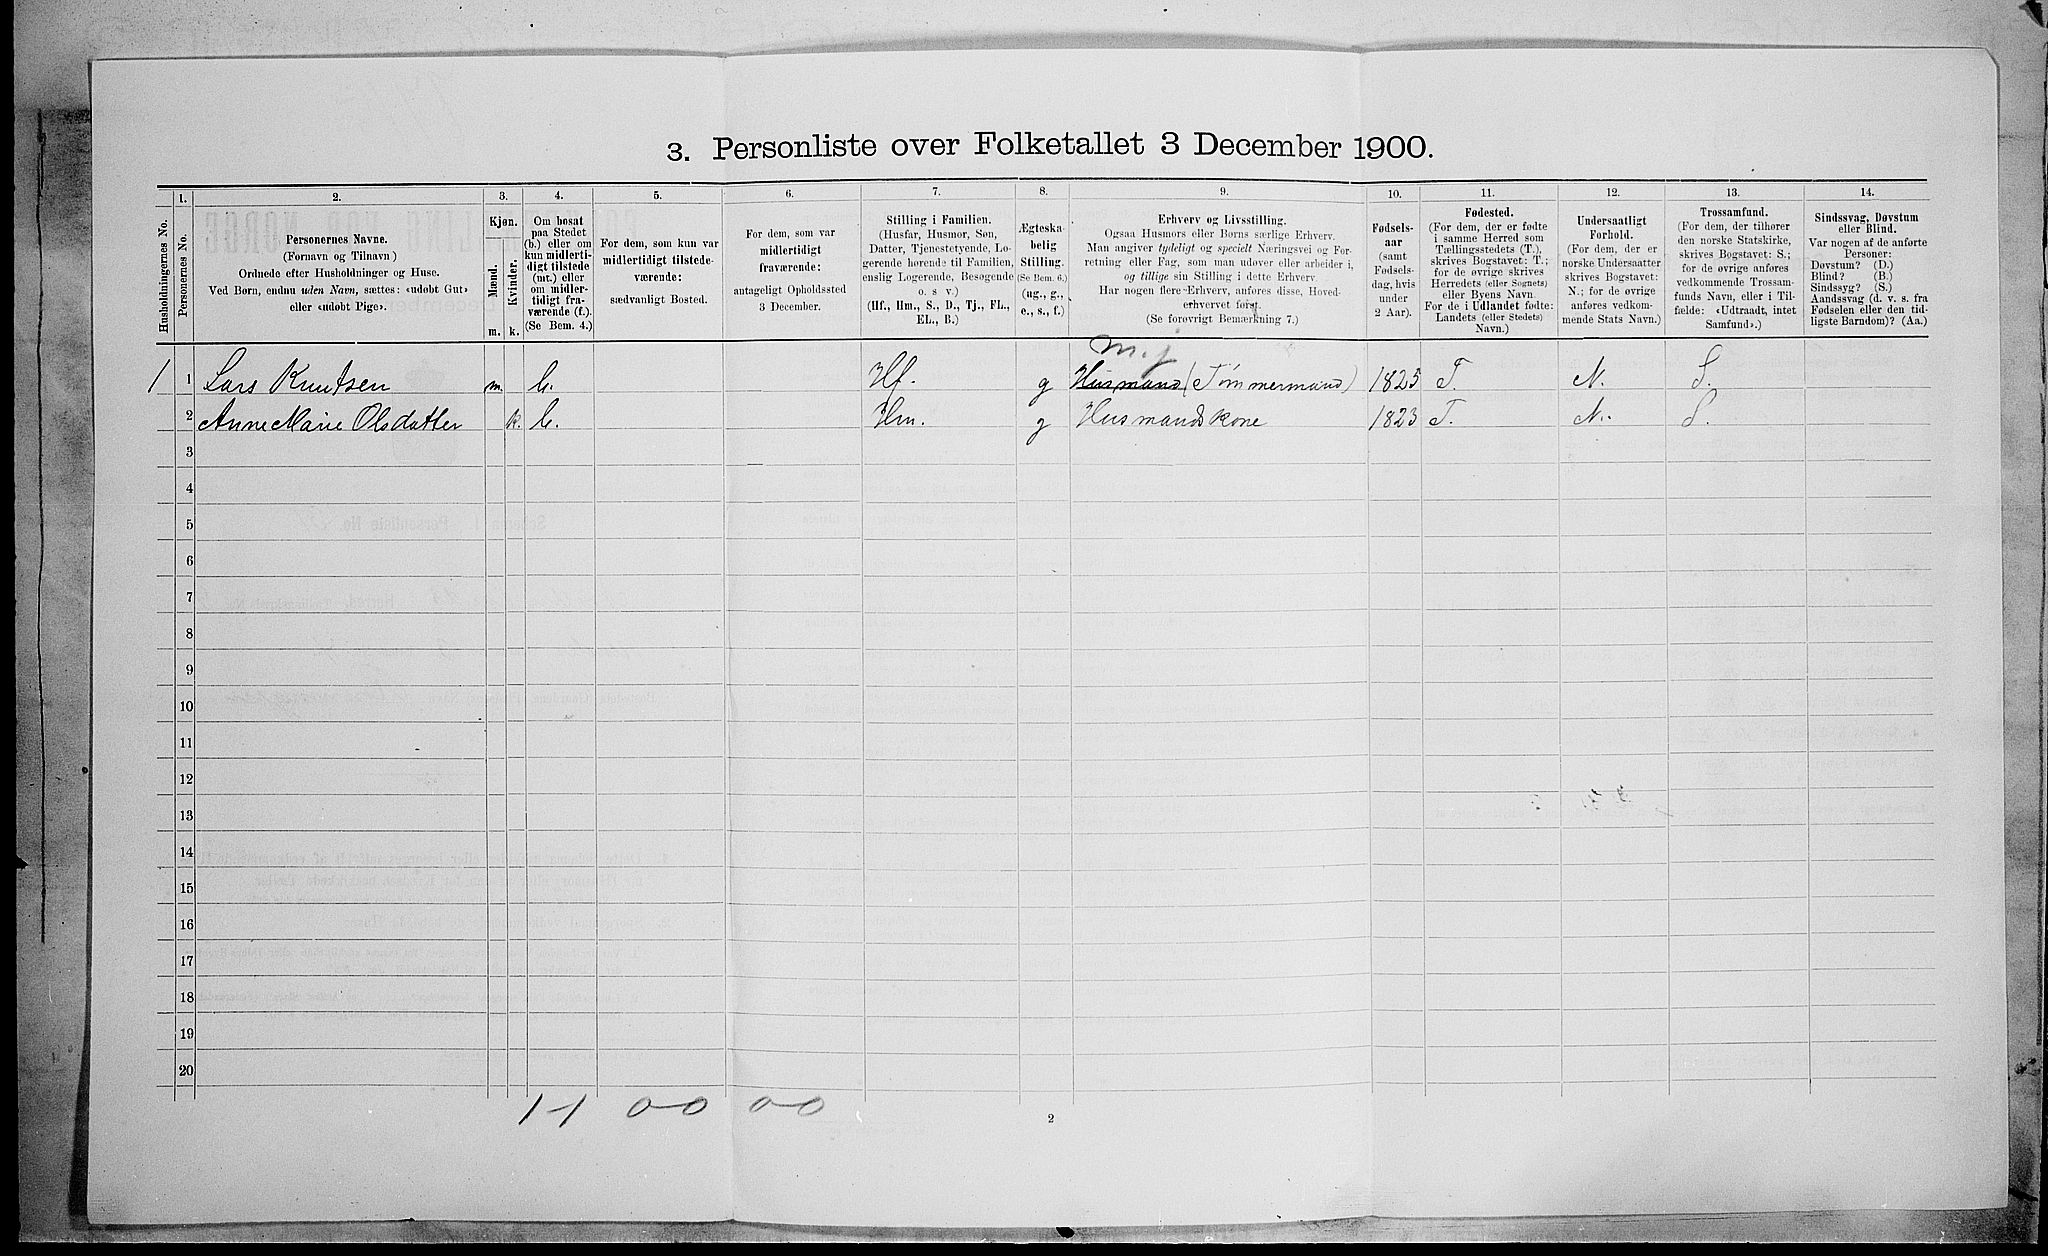 3. Personliste over Folketallet 3 December 1900.
1. 2. 3. 4. 5. 6. 7. 8. 9. 10. 11. 12. 13. 14.
Husholdningernes No.
Personernes No.
Personernes Navne.
(Fornavn og Tilnavn)
Ordnede efter Husholdninger og Huse.
Ved Børn, endnu uden Navn, sættes: «udøbt Gut»
eller «udøbt Pige».
Kjøn.
Mænd.
Kvinder.
m. k.
Om bosat
paa Stedet
(b.) eller om
kun midlerti-
digt tilstede
(mt.) eller
om midler-
tidigt fra-
værende (f.).
(Se Bem. 4.)
For dem, som kun var
midlertidigt tilstede-
værende:
sædvanligt Bosted.
For dem, som var
midlertidigt
fraværende:
antageligt Opholdssted
3 December.
Stilling i Familien.
(Husfar, Husmor, Søn,
Datter, Tjenestetyende, Lo-
gerende hørende til Familien,
enslig Logerende, Besøgende
o. s v.)
(Hf., Hm., S., D., Tj., FL.,
EL., B.)
Ægteska-
belig
Stilling.
(Se Bem. 6.)
(ug., g.,
e., s., f.)
Erhverv og Livsstilling.
Ogsaa Husmors eller Børns særlige Erhverv.
Man angiver tydeligt og specielt Næringsvei og For-
retning eller Fag, som man udøver eller arbeider i,
og tillige sin Stilling i dette Erhverv.
Har nogen flere Erhverv, anføres disse, Hoved-
erhvervet først.
(Se forøvrigt Bemærkning 7.)
Fødsels-
aar
(samt
Fødsels-
dag, hvis
under
2 Aar).
Fødested.
(For dem, der er fødte
i samme Herred som
Tællingsstedets (T.),
skrives Bogstavet: T.;
for de øvrige skrives
Herredets (eller Sognets)
eller Byens Navn.
For de i Udlandet fødte:
Landets (eller Stedets)
Navn.)
Undersaatligt
Forhold.
(For dem, der er
norske Undersaatter
skrives Bogstavet:
N.; for de øvrige
anføres vedkom-
mende Stats Navn.)
Trossamfund.
(For dem, der tilhører
den norske Statskirke,
skrives Bogstavet: S.;
for de øvrige anføres
vedkommende Trossam-
funds Navn, eller i Til-
fælde: «Udtraadt, intet
Samfund».)
Sindssvag, Døvstum
eller Blind.
Var nogen af de anførte
Personer:
Døvstum? (D.)
Blind? (B.)
Sindssyg? (S.)
Aandssvag (d. v. s. fra
Fødselen eller den tid-
ligste Barndom)? (Aa.)
m. j
1 1 Lars Knutsen m. b. Hf. g Husmand (Tømmermand) 1825 T. N. S.
2 Anne Marie Olsdatter k. b. Hm. g Husmandskone 1823 T. N. S.
3
4
5
6
7
8
9
10
11
12
13
14
15
16
17
18
19
20
1-1 0-0 0-0
2